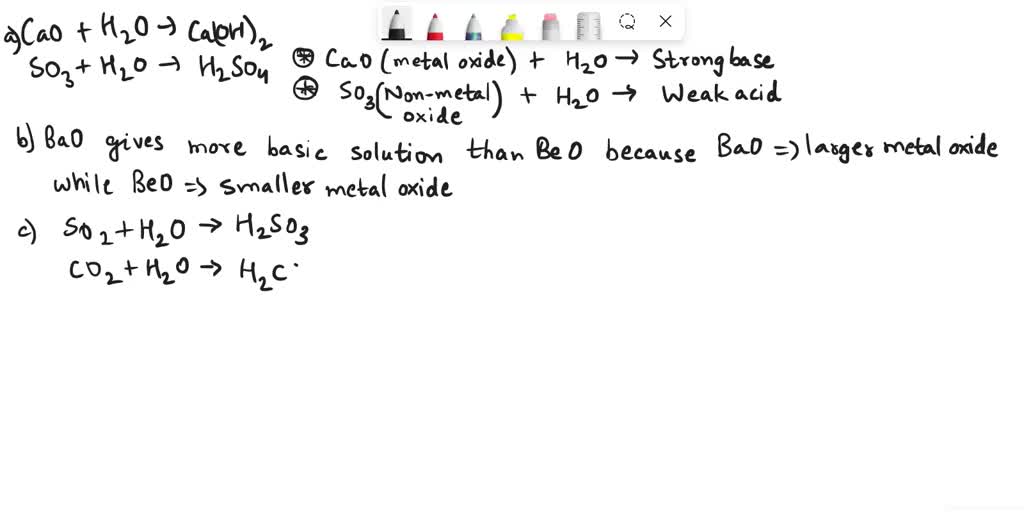 a) CaO + H2O → Ca(OH)2
SO3 + H2O → H2SO4
⊛ CaO (metal oxide) + H2O → Strong base
⊛ SO3 (Non-metal oxide) + H2O → Weak acid
b) BaO gives more basic solution than BeO because BaO => larger metal oxide
while BeO => smaller metal oxide
c) SO2 + H2O → H2SO3
CO2 + H2O → H2C